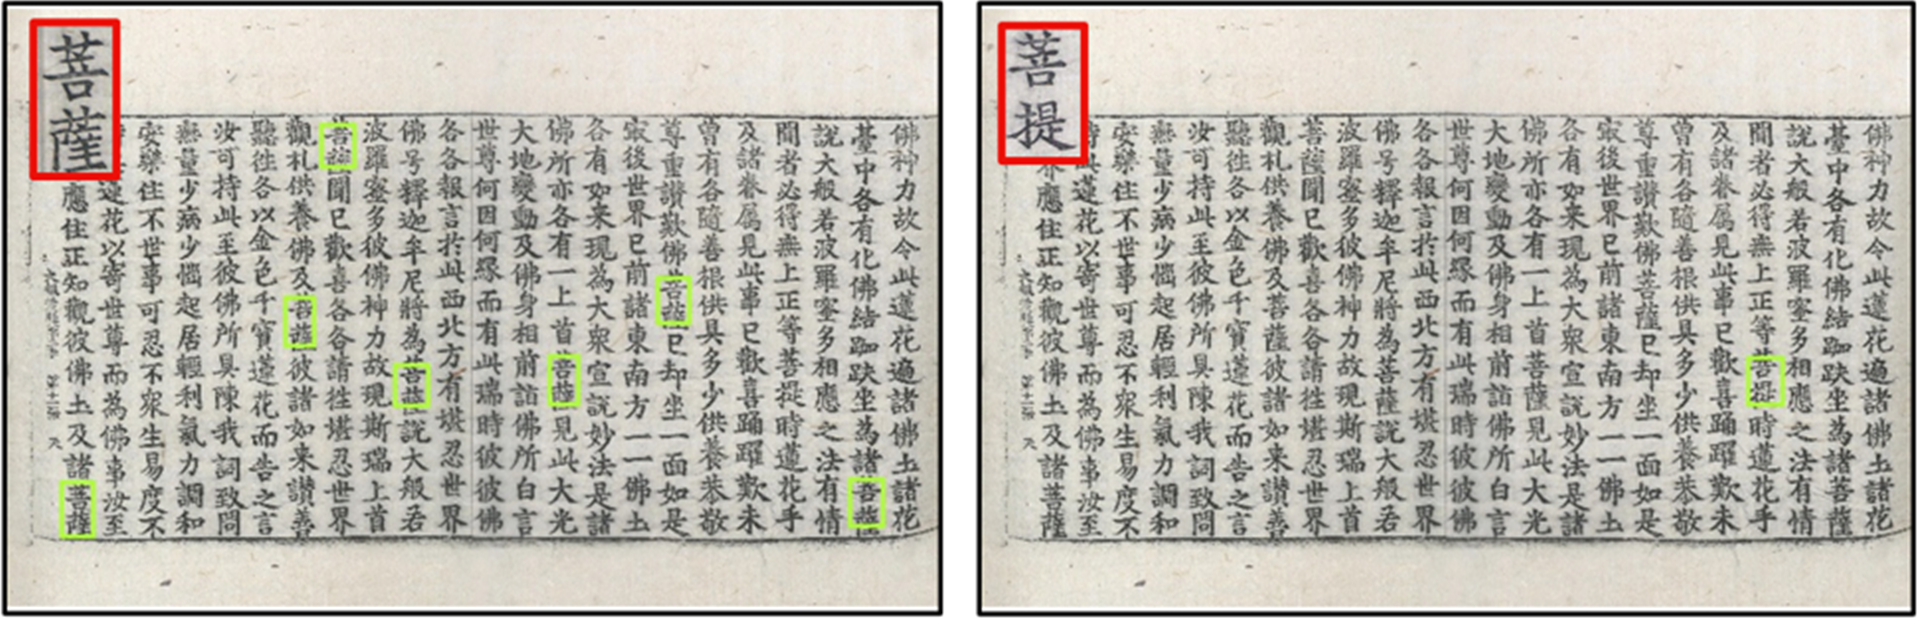 菩薩
佛神力故令此蓮花遍諸佛土諸花
臺中各有化佛結跏趺坐為諸菩薩
說大般若波羅蜜多相應之法有情
聞者必得無上正等菩提時蓮花手
及諸眷屬見此事已歡喜踊躍歎未
曾有各隨善根供具多少供養恭敬
尊重讚歎佛菩薩已却坐一面如是
寂後世界已前諸東南方一一佛土
各有如来現為大衆宣說妙法是諸
佛所亦各有一上首菩薩見此大光
大地變動及佛身相前詣佛所白言
世尊何因何縁而有此瑞時彼彼佛
各各報言於此西北方有堪忍世界
佛号釋迦牟尼將為菩薩說大般若
波羅蜜多彼佛神力故現斯瑞上首
菩薩聞已歡喜各各請往堪忍世界
觀礼供養佛及菩薩彼諸如来讃善
聽往各以金色千寶蓮花而告之言
汝可持此至彼佛所具陳我詞致問
無量少病少惱起居輕利氣力調和
安樂住不世事可忍不衆生易度不
蓮花以寄世尊而為佛事汝至
應住正知觀彼佛土及諸菩薩
菩提
佛神力故令此蓮花遍諸佛土諸花
臺中各有化佛結跏趺坐為諸菩薩
說大般若波羅蜜多相應之法有情
聞者必得無上正等菩提時蓮花手
及諸眷屬見此事已歡喜踊躍歎未
曾有各隨善根供具多少供養恭敬
尊重讚歎佛菩薩已却坐一面如是
寂後世界已前諸東南方一一佛土
各有如来現為大衆宣說妙法是諸
佛所亦各有一上首菩薩見此大光
大地變動及佛身相前詣佛所白言
世尊何因何縁而有此瑞時彼彼佛
各各報言於此西北方有堪忍世界
佛号釋迦牟尼將為菩薩說大般若
波羅蜜多彼佛神力故現斯瑞上首
菩薩聞已歡喜各各請往堪忍世界
觀礼供養佛及菩薩彼諸如来讃善
聽往各以金色千寶蓮花而告之言
汝可持此至彼佛所具陳我詞致問
無量少病少惱起居輕利氣力調和
安樂住不世事可忍不衆生易度不
蓮花以寄世尊而為佛事汝至
應住正知觀彼佛土及諸菩薩